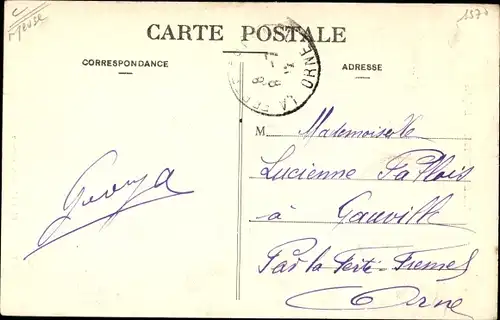 Meuse
1570
CARTE POSTALE
CORRESPONDANCE
ADRESSE
LA FERTE
ORNE
M. Mademoiselle
Lucienne
à Gauville
Par la Ferté-Fresnel
Orne